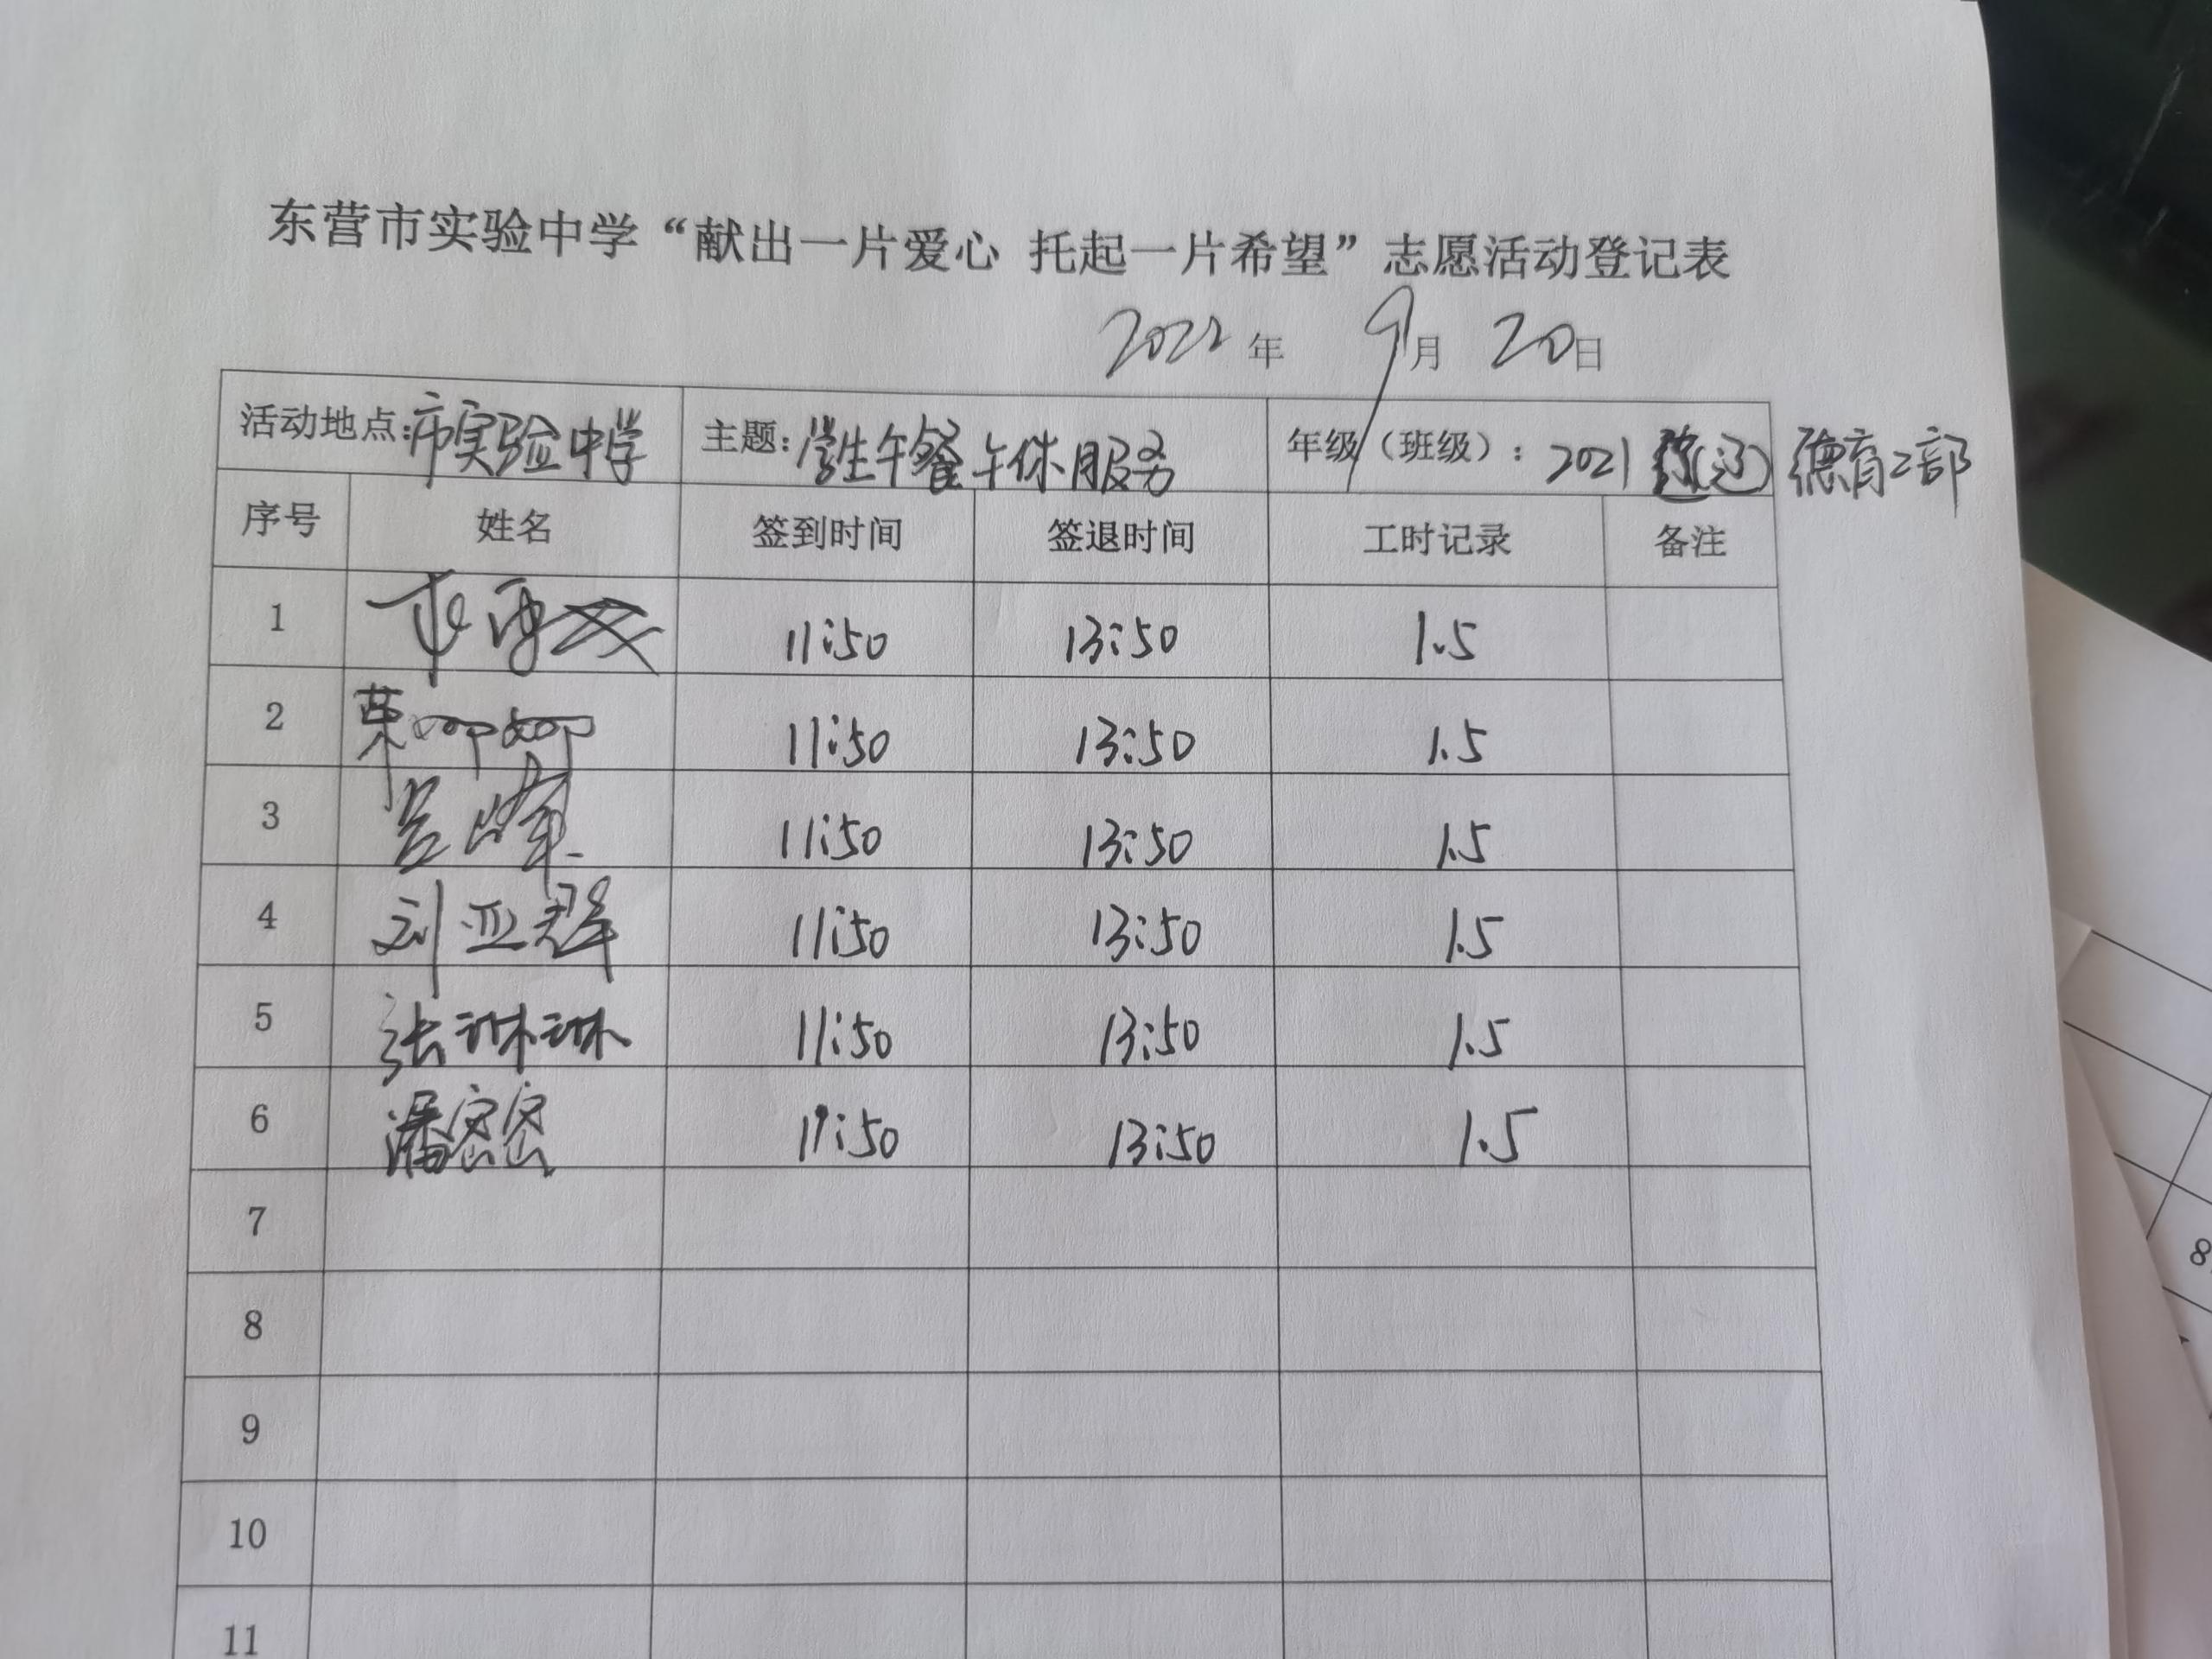 东营市实验中学“献出一片爱心 托起一片希望”志愿活动登记表
2022年 9月 20日
活动地点：市实验中学 主题：学生午餐午休服务 年级（班级）：2021 德育2部
序号 姓名 签到时间 签退时间 工时记录 备注
1 11:50 13:50 1.5
2 11:50 13:50 1.5
3 吕峰 11:50 13:50 1.5
4 刘亚群 11:50 13:50 1.5
5 张琳琳 11:50 13:50 1.5
6 潘密密 11:50 13:50 1.5
7
8
9
10
11
8